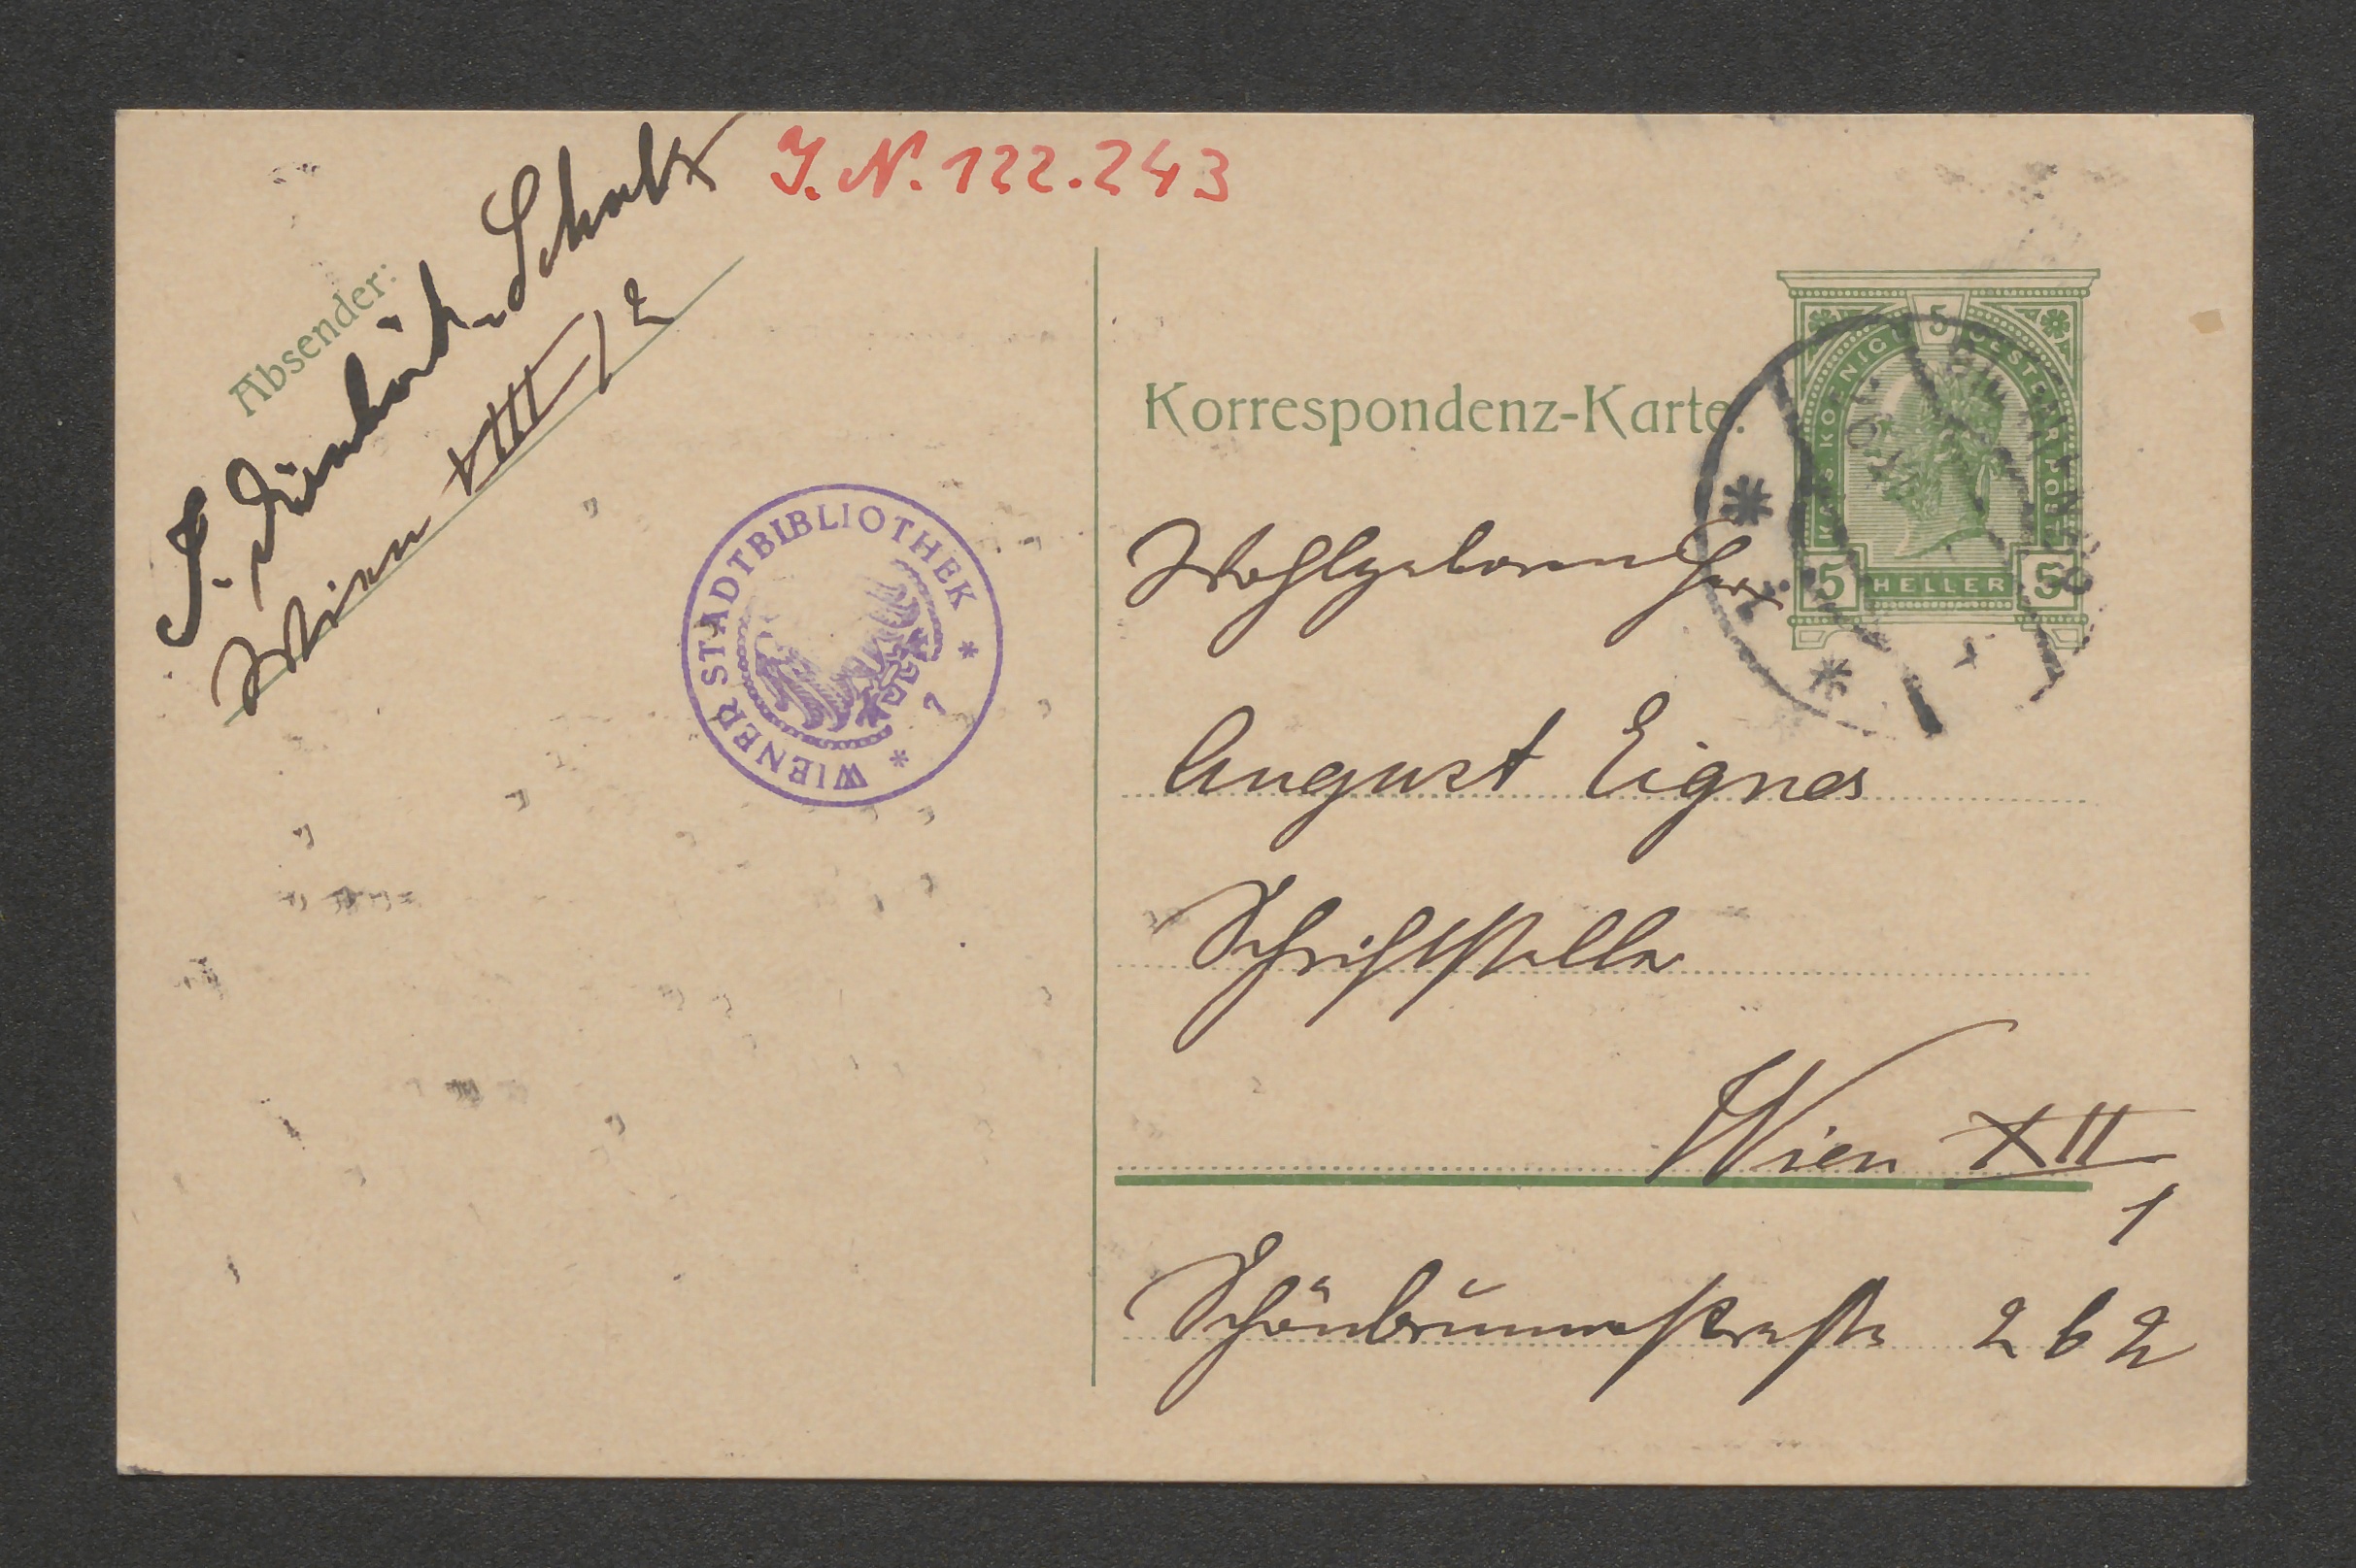 J. N. 122.243
Absender:
Schatz
Wien VIII/2
WIENER STADTBIBLIOTHEK * 1 *
Korrespondenz-Karte.
KAIS. KOENIGL. OESTERR. POST
5
5 HELLER 5
Wohlgeboren Herr
August Eigner
Schriftsteller
Wien XII
1
Schönbrunnerstraße 262